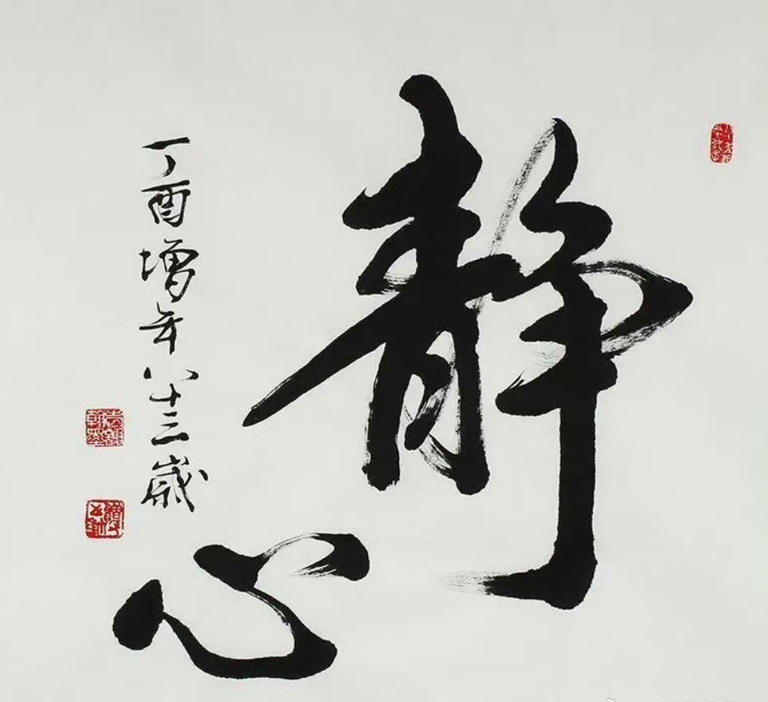 静心
丁酉增年八十三歲